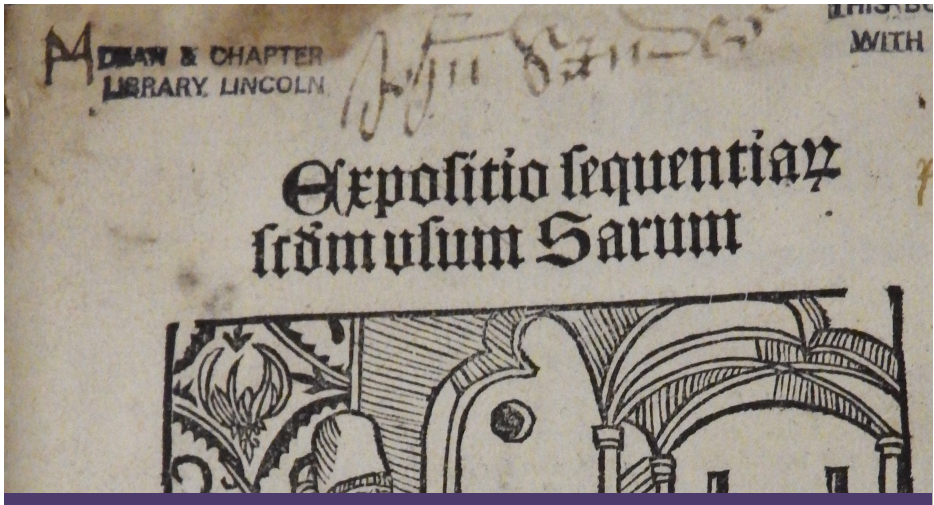 DEAN & CHAPTER
LIBRARY, LINCOLN
THIS BO
WITH
Expoſitio ſequentiaꝝ
ſcd̄m uſum Sarum